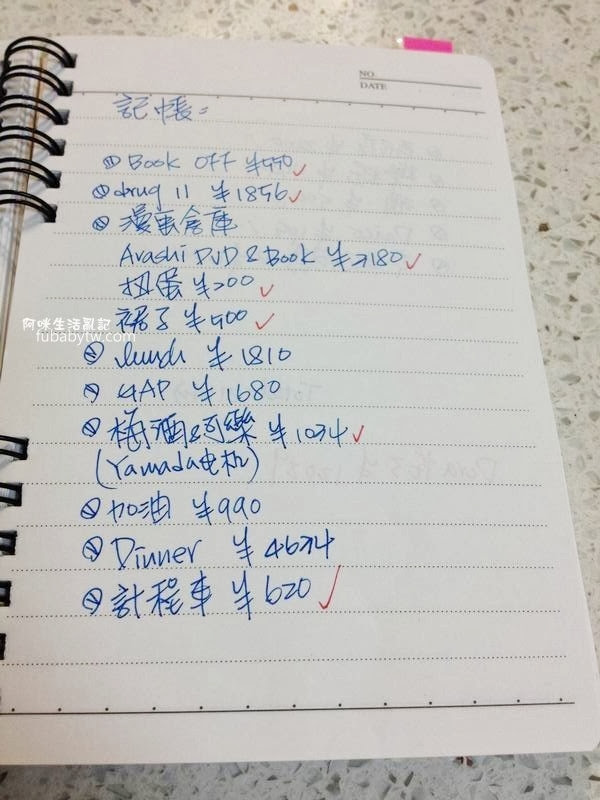 NO.
DATE
記帳：
Book OFF ¥550 ✓
drug 11 ¥1856 ✓
漫画倉庫
Arashi DVD & Book ¥2180 ✓
扭蛋 ¥200 ✓
裙子 ¥500 ✓
lunch ¥1810
GAP ¥1680
梅酒&可樂 ¥1024 ✓
(Yamada电机)
加油 ¥990
Dinner ¥4624
計程車 ¥620 ✓
阿咪生活亂記
fubabytw.com